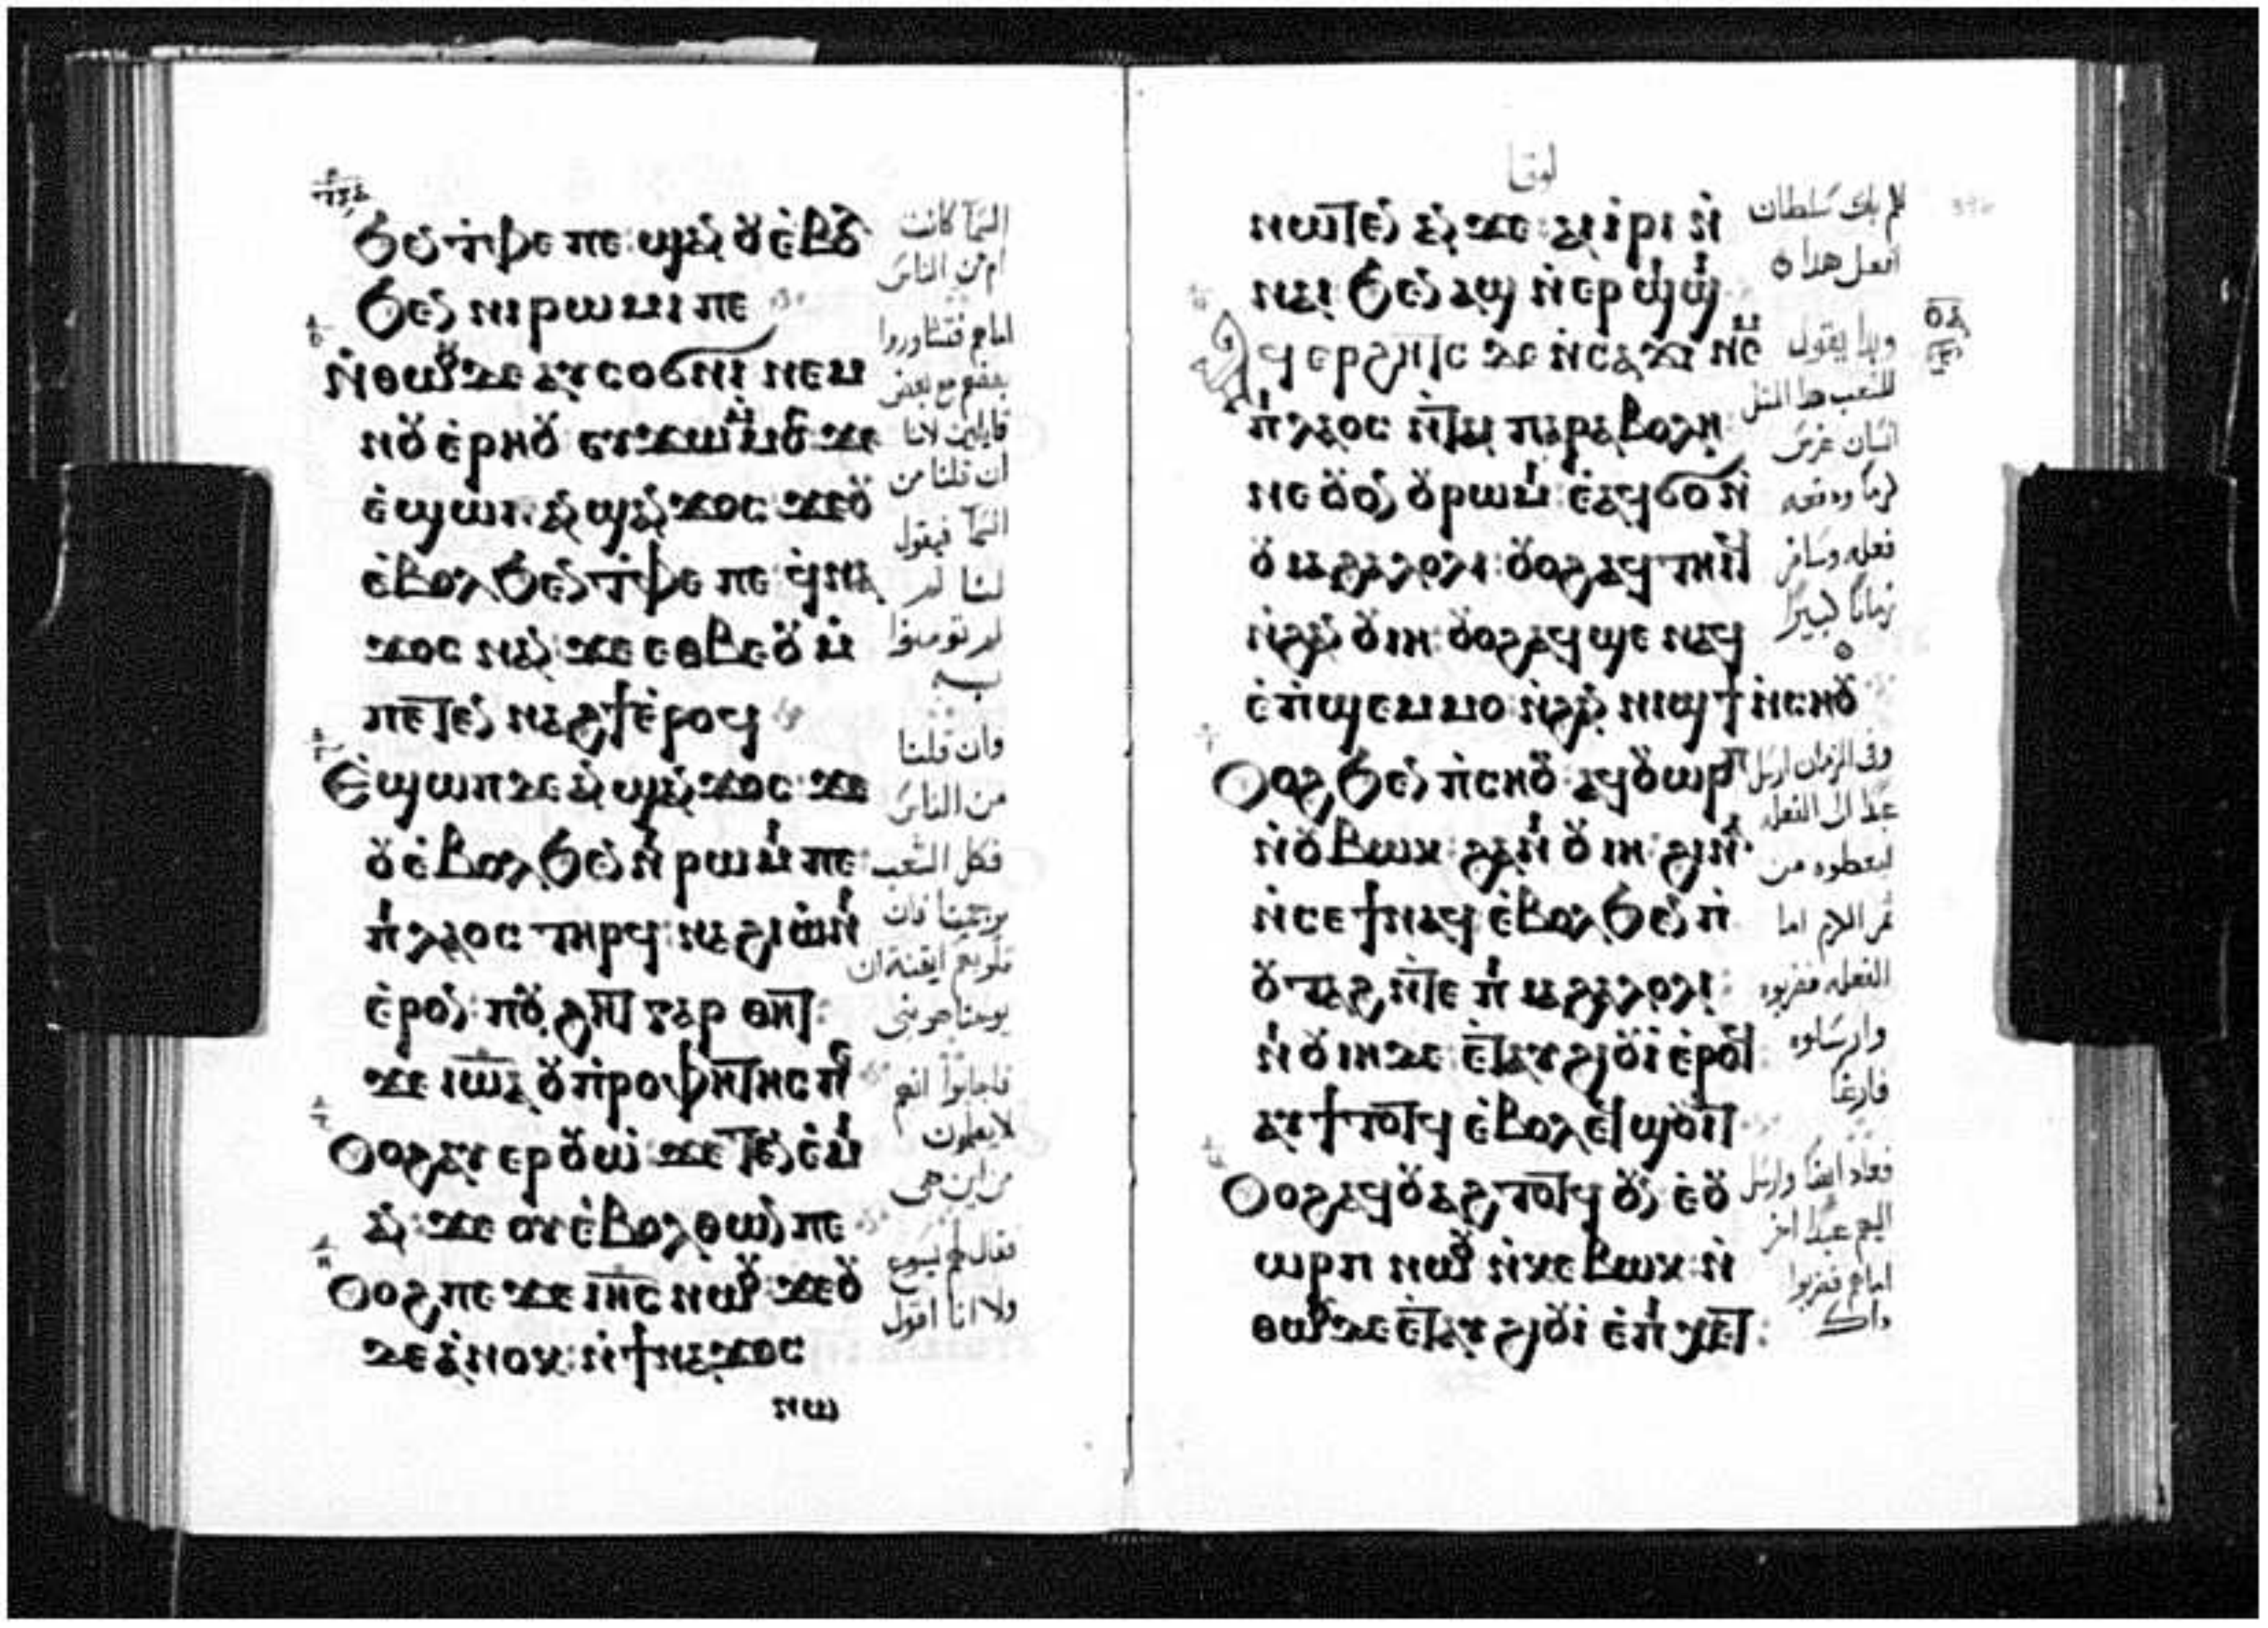 ϧⲉⲛ ⲧ̀ⲫⲉ ⲡⲉ: ϣⲁⲛ ⲟⲩⲉ̀ⲃⲟⲗ
ϧⲉⲛ ⲛⲓⲣⲱⲙⲓ ⲡⲉ
ⲛ̀ⲑⲱⲟⲩ ⲇⲉ ⲁⲩⲥⲟϭⲛⲓ ⲛⲉⲙ
ⲛⲟⲩⲉ̀ⲣⲏⲟⲩ ⲉⲩϫⲱ ⲙ̀ⲙⲟⲥ ϫⲉ
ⲉ̀ϣⲱⲡ ⲁⲛϣⲁⲛϫⲟⲥ ϫⲉ ⲟⲩ
ⲉ̀ⲃⲟⲗ ϧⲉⲛ ⲧ̀ⲫⲉ ⲡⲉ: ϥ̀ⲛⲁ
ϫⲟⲥ ⲛⲁⲛ: ϫⲉ ⲉⲑⲃⲉ ⲟⲩ ⲙ̀
ⲡⲉⲧⲉⲛⲛⲁϩϯ ⲉ̀ⲣⲟϥ
Ⲉ̀ϣⲱⲡ ⲇⲉ ⲁⲛϣⲁⲛϫⲟⲥ: ϫⲉ
ⲟⲩⲉ̀ⲃⲟⲗ ϧⲉⲛ ⲛⲓⲣⲱⲙⲓ ⲡⲉ:
ⲡⲓⲗⲁⲟⲥ ⲧⲏⲣϥ: ⲛⲁϩⲓⲱ̀ⲛⲓ
ⲉ̀ⲣⲟⲛ: ⲡⲟⲩϩⲏⲧ ⲅⲁⲣ ⲑⲏⲧ:
ϫⲉ ⲓⲱⲁ ⲟⲩⲡ̀ⲣⲟⲫⲏⲧⲏⲥ ⲡⲉ
Ⲟⲩⲟϩ ⲁⲩⲉⲣⲟⲩⲱ̀ ϫⲉ ⲧⲉⲛⲉ̀ⲙⲓ
ⲁⲛ: ϫⲉ ⲟⲩⲉ̀ⲃⲟⲗ ⲑⲱⲛ ⲡⲉ
Ⲟⲩⲟϩ ⲡⲉϫⲉ ⲓⲏⲥ ⲛⲱⲟⲩ: ϫⲉ ⲟⲩ
ⲇⲉ ⲁ̀ⲛⲟⲕ: ⲛ̀ϯⲛⲁϫⲟⲥ
ⲛⲱ
السما كانت
ام من الناس
اما هم فتشاوروا
بعضهم مع بعض
قايلين لانا
ان قلنا من
السما فيقول
لنا لم
لم تومنوا
به
وان قلنا
من الناس
فكل الشعب
يرجمنا فان
قلوبهم ايقنة ان
يوحنا هو نبى
فاجابوا انهم
لا يعلمون
من اين هى
فقال لهم يسوع
ولا انا اقول
لوقا
ⲛⲱⲧⲉⲛ ⲁⲛ ϫⲉ: ⲁⲓⲓ̀ⲣⲓ ⲛ̀
ⲛⲁⲓ ϧⲉⲛ ⲁϣ ⲛ̀ⲉⲣϣⲓϣⲓ
Ⲁϥⲉⲣϩⲏⲧⲥ ⲇⲉ ⲛ̀ⲥⲁϫⲓ ⲛⲉⲙ
ⲡⲓⲗⲁⲟⲥ ⲛ̀ⲧⲁⲓ ⲡⲁⲣⲁⲃⲟⲗⲏ:
ⲛⲉ ⲟⲩⲟⲛ ⲟⲩⲣⲱⲙⲓ: ⲉ̀ⲁϥϭⲟ ⲛ̀
ⲟⲩⲓⲁϩⲁⲗⲟⲗⲓ: ⲟⲩⲟϩ ⲁϥⲧⲏⲓϥ
ⲛ̀ϩⲁⲛⲟⲩⲓⲏ: ⲟⲩⲟϩ ⲁϥϣⲉ ⲛⲁϥ
ⲉ̀ⲡ̀ϣⲉⲙⲙⲟ: ⲛ̀ϩⲁⲛⲛⲓϣϯ ⲛ̀ⲥⲛⲟⲩ
Ⲟⲩⲟϩ ϧⲉⲛ ⲡ̀ⲥⲛⲟⲩ: ⲁϥⲟⲩⲱⲣⲡ
ⲛ̀ⲟⲩⲃⲱⲕ: ϩⲁ ⲛⲓⲟⲩⲓⲏ: ϩⲓⲛⲁ
ⲛ̀ⲥⲉϯ ⲛⲁϥ ⲉ̀ⲃⲟⲗ ϧⲉⲛ ⲡ̀
ⲟⲩⲧⲁϩ ⲛ̀ⲧⲉ ⲡⲓⲓⲁϩⲁⲗⲟⲗⲓ:
ⲛⲓⲟⲩⲓⲏ ⲇⲉ: ⲉ̀ⲧⲁⲩϩⲓⲟⲩⲓ̀ ⲉ̀ⲣⲟϥ
ⲁⲩϯⲧⲟⲧϥ ⲉ̀ⲃⲟⲗ ⲉϥϣⲟⲩⲓⲧ
Ⲟⲩⲟϩ ⲁϥⲟⲩⲁϩⲧⲟⲧϥ ⲟⲛ ⲉ̀ⲟⲩ
ⲱⲣⲡ ⲛⲱⲟⲩ ⲛ̀ⲕⲉⲃⲱⲕ: ⲛ̀
ⲑⲱⲟⲩ ⲇⲉ ⲉ̀ⲧⲁⲩϩⲓⲟⲩⲓ̀ ⲉ̀ⲡⲓⲭⲉⲧ:
لكم باى سلطان
افعل هدا
وبدا يقول
للشعب هدا المثل
انسان غرس
كرما ودفعه
فعله وسافر
زمانا كبيرا
وفى الزمان ارسل
عبدا الى الفعله
ليعطوه من
ثمر الكرم اما
الفعله فضربوه
وارسلوه
فارغا
فعاد ايضا وارسل
اليهم عبدا اخر
اما هم فضربوا
داك